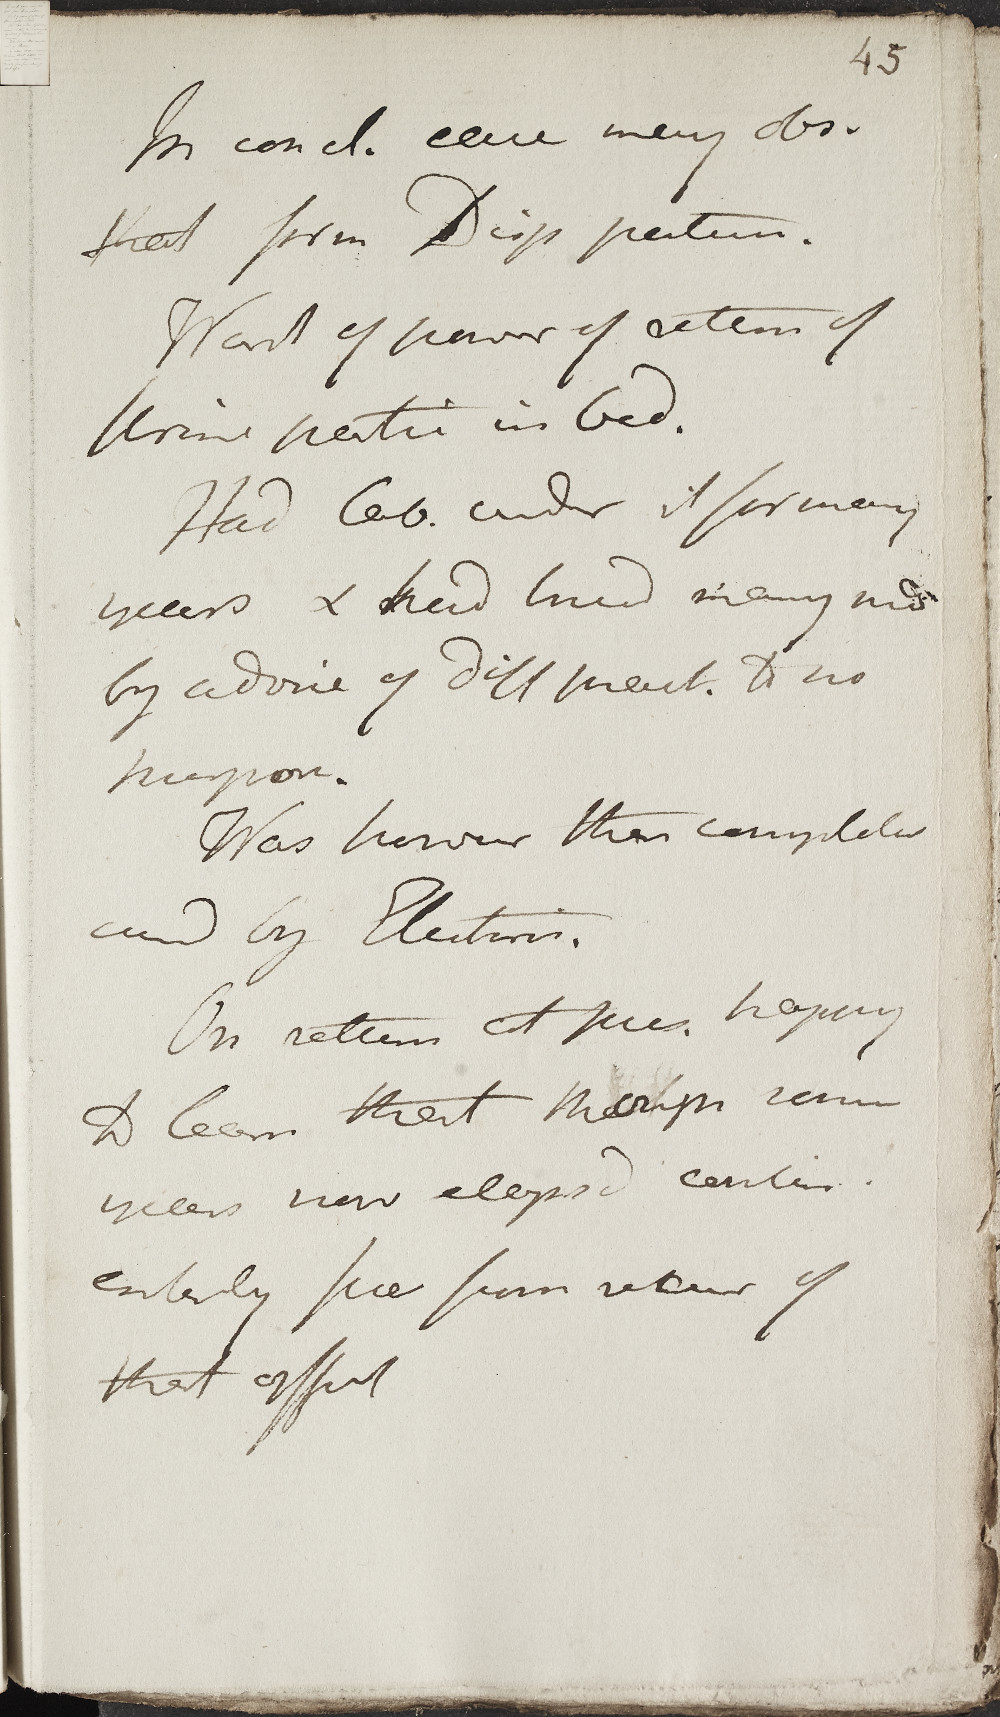 45
In concl. case many obs.
that form Disp patien.
Want of power of retens of
Urine partic in bed.
Had lab. under it for many
years & had tried many
by advice of diff pract. to no
purpose.
Was however then completely
cured by Electric.
On return at pres. happy
to learn that though some
years now elaps'd contin.
entirely free from return of
that affect